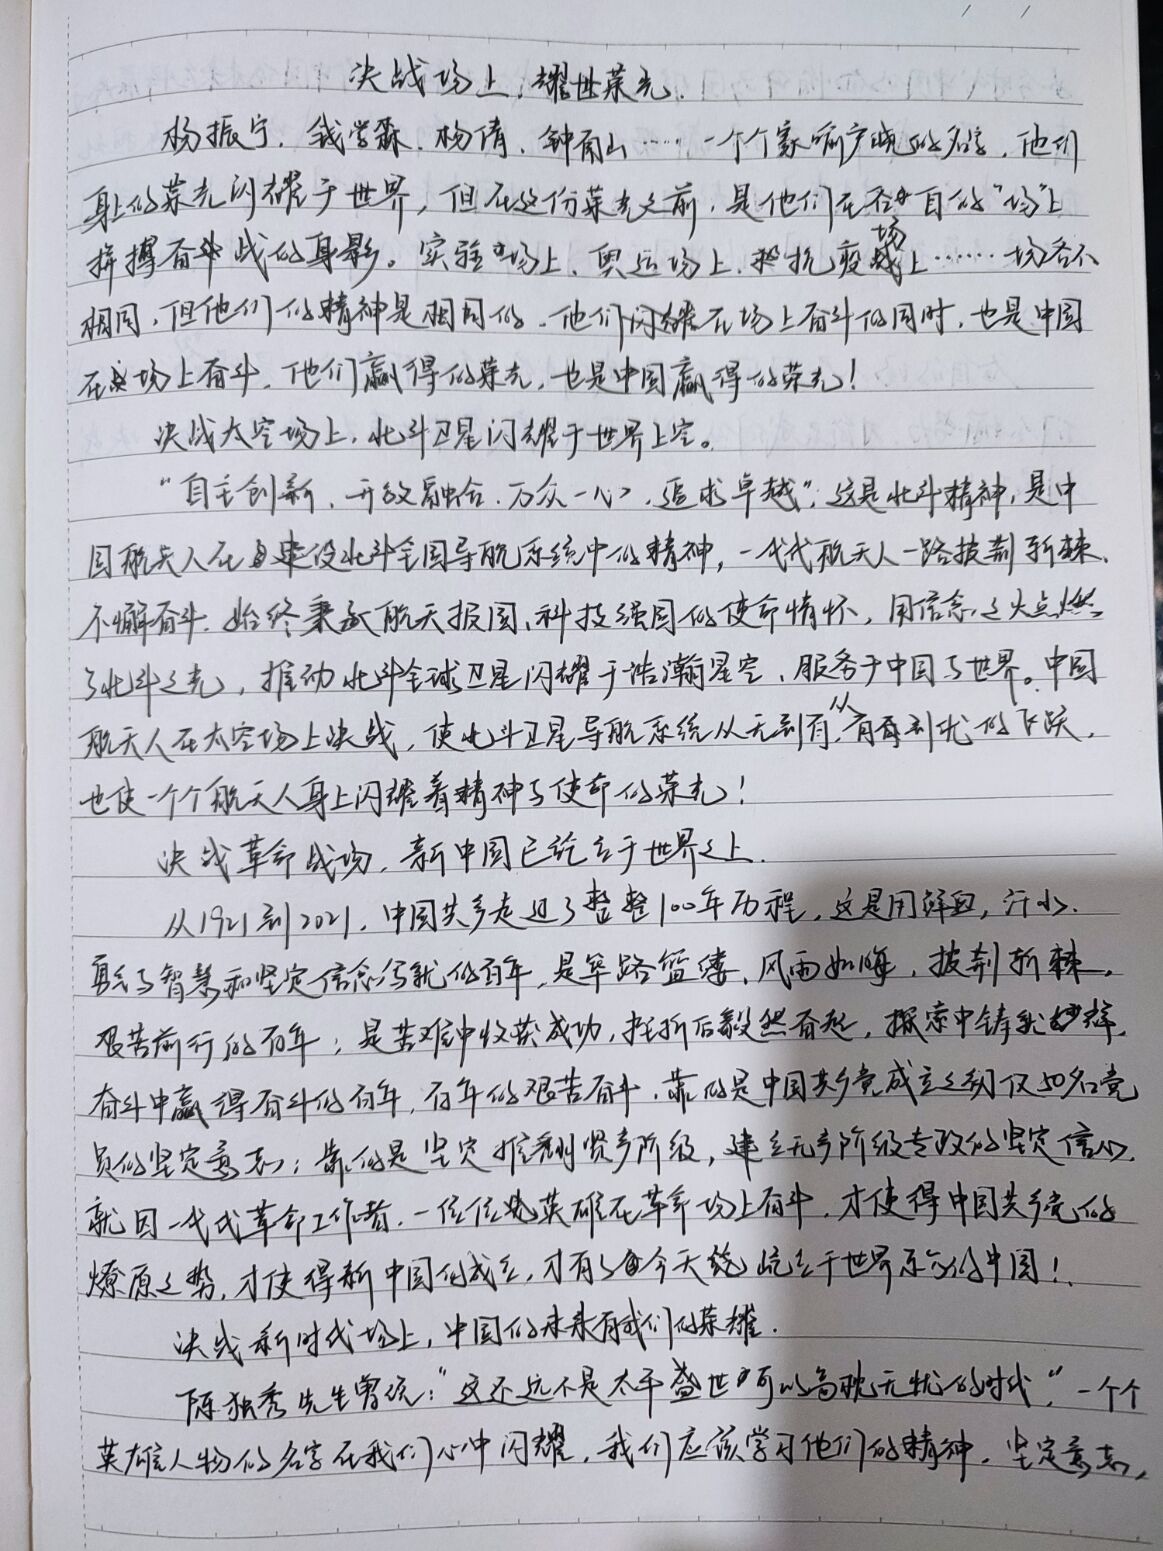 决战场上,耀世荣光.
杨振宁、钱学森、杨倩、钟南山……一个个家喻户晓的名字,他们
身上的荣光闪耀于世界,但在这份荣光之前,是他们在各自的“场”上
拼搏奋战的身影。实验场上、奥运场上、抗疫战场上……场各不
相同,但他们的精神是相同的.他们闪耀在场上奋斗的同时,也是中国
在场上奋斗.他们赢得的荣光,也是中国赢得的荣光!
决战太空场上,北斗卫星闪耀于世界上空。
“自主创新、开放融合、万众一心、追求卓越”,这是北斗精神,是中
国航天人在建设北斗全国导航系统中的精神,一代代航天人一路披荆斩棘、
不懈奋斗.始终秉承航天报国、科技强国的使命情怀,用信念之火点燃
了北斗之光,推动北斗全球卫星闪耀于浩瀚星空、服务于中国与世界。中国
航天人在太空场上决战,使北斗卫星导航系统从无到有,从有到优的飞跃,
也使一个个航天人身上闪耀着精神与使命的荣光!
决战革命战场,新中国已屹立于世界之上.
从1921到2021,中国共产走过了整整100年历程,这是用鲜血,汗水、
勇气与智慧和坚定信念写就的百年,是筚路篮缕、风雨如晦,披荆斩棘,
艰苦前行的百年;是苦难中收获成功,挫折后毅然奋起,探索中铸就
奋斗中赢得奋斗的百年,百年的艰苦奋斗.靠的是中国共产党成立之刻仅50名党
员的坚定意志;靠的是坚定推翻资产阶级,建立无产阶级专政的坚定信心.
就因一代代革命工作者.一位位英雄在革命场上奋斗.才使得中国共产党的
燎原之势,才使得新中国的成立,才有了今天屹立于世界东方的中国!
决战新时代场上,中国的未来有我们的荣耀.
陈独秀先生曾说:“这还远不是太平盛世可以高枕无忧的时代.”一个个
英雄人物的名字在我们心中闪耀,我们应该学习他们的精神,坚定意志,